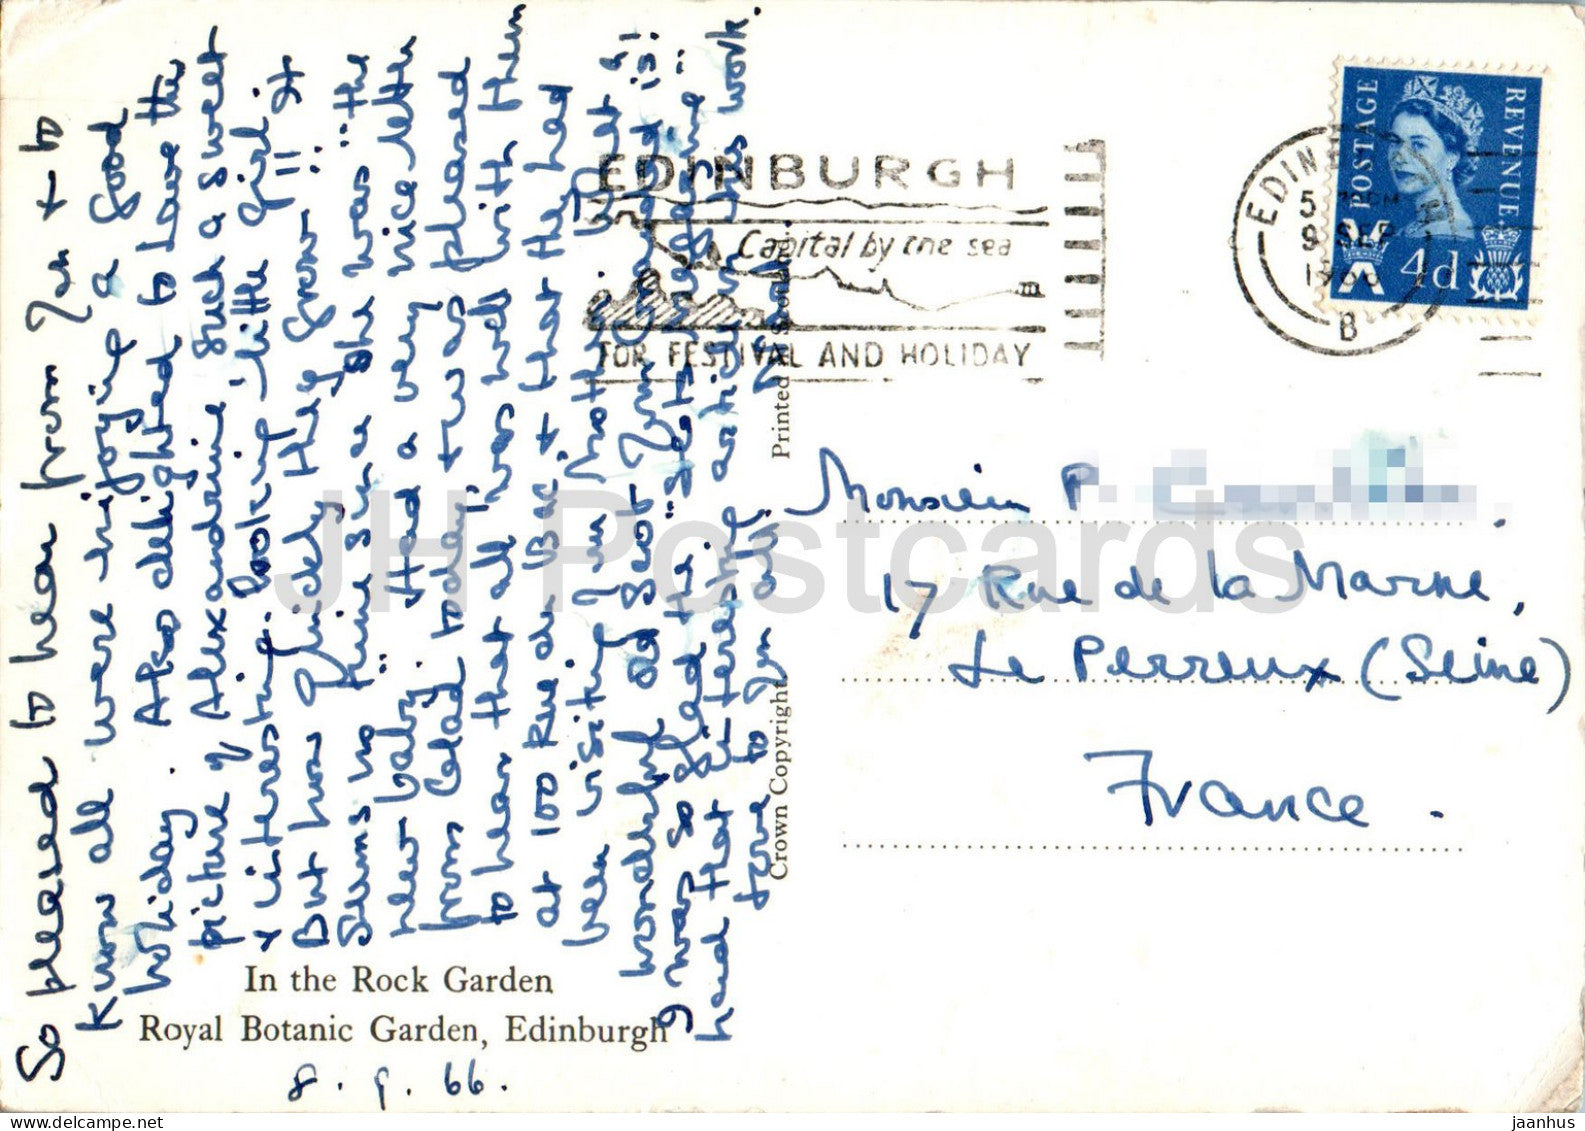 So pleased to hear from You & to
Know all were enjoying a good
holiday. Also delighted to have the
picture of Alexandrine such a sweet
& interesting looking little girl.
But how quickly they grow !! It
seems no time since she was "the
new baby". Had a very nice letter
from today, & was pleased
to hear that all was well with them
at 100 Rue du Bac & that she had
been visiting your Mother. What a
wonderful old
I was so glad the
had that interesting article in his work.
Love to You all.
In the Rock Garden
Royal Botanic Garden, Edinburgh
8. 9. 66.
Crown Copyright
Printed in
EDINBURGH
Capital by the sea
FOR FESTIVAL AND HOLIDAY
EDINBURGH
9 SEP
1966
B
POSTAGE
REVENUE
4d
Monsieur P.
17 Rue de la Marne,
Le Perreux (Seine)
France.
JH Postcards
delcampe.net
jaanhus